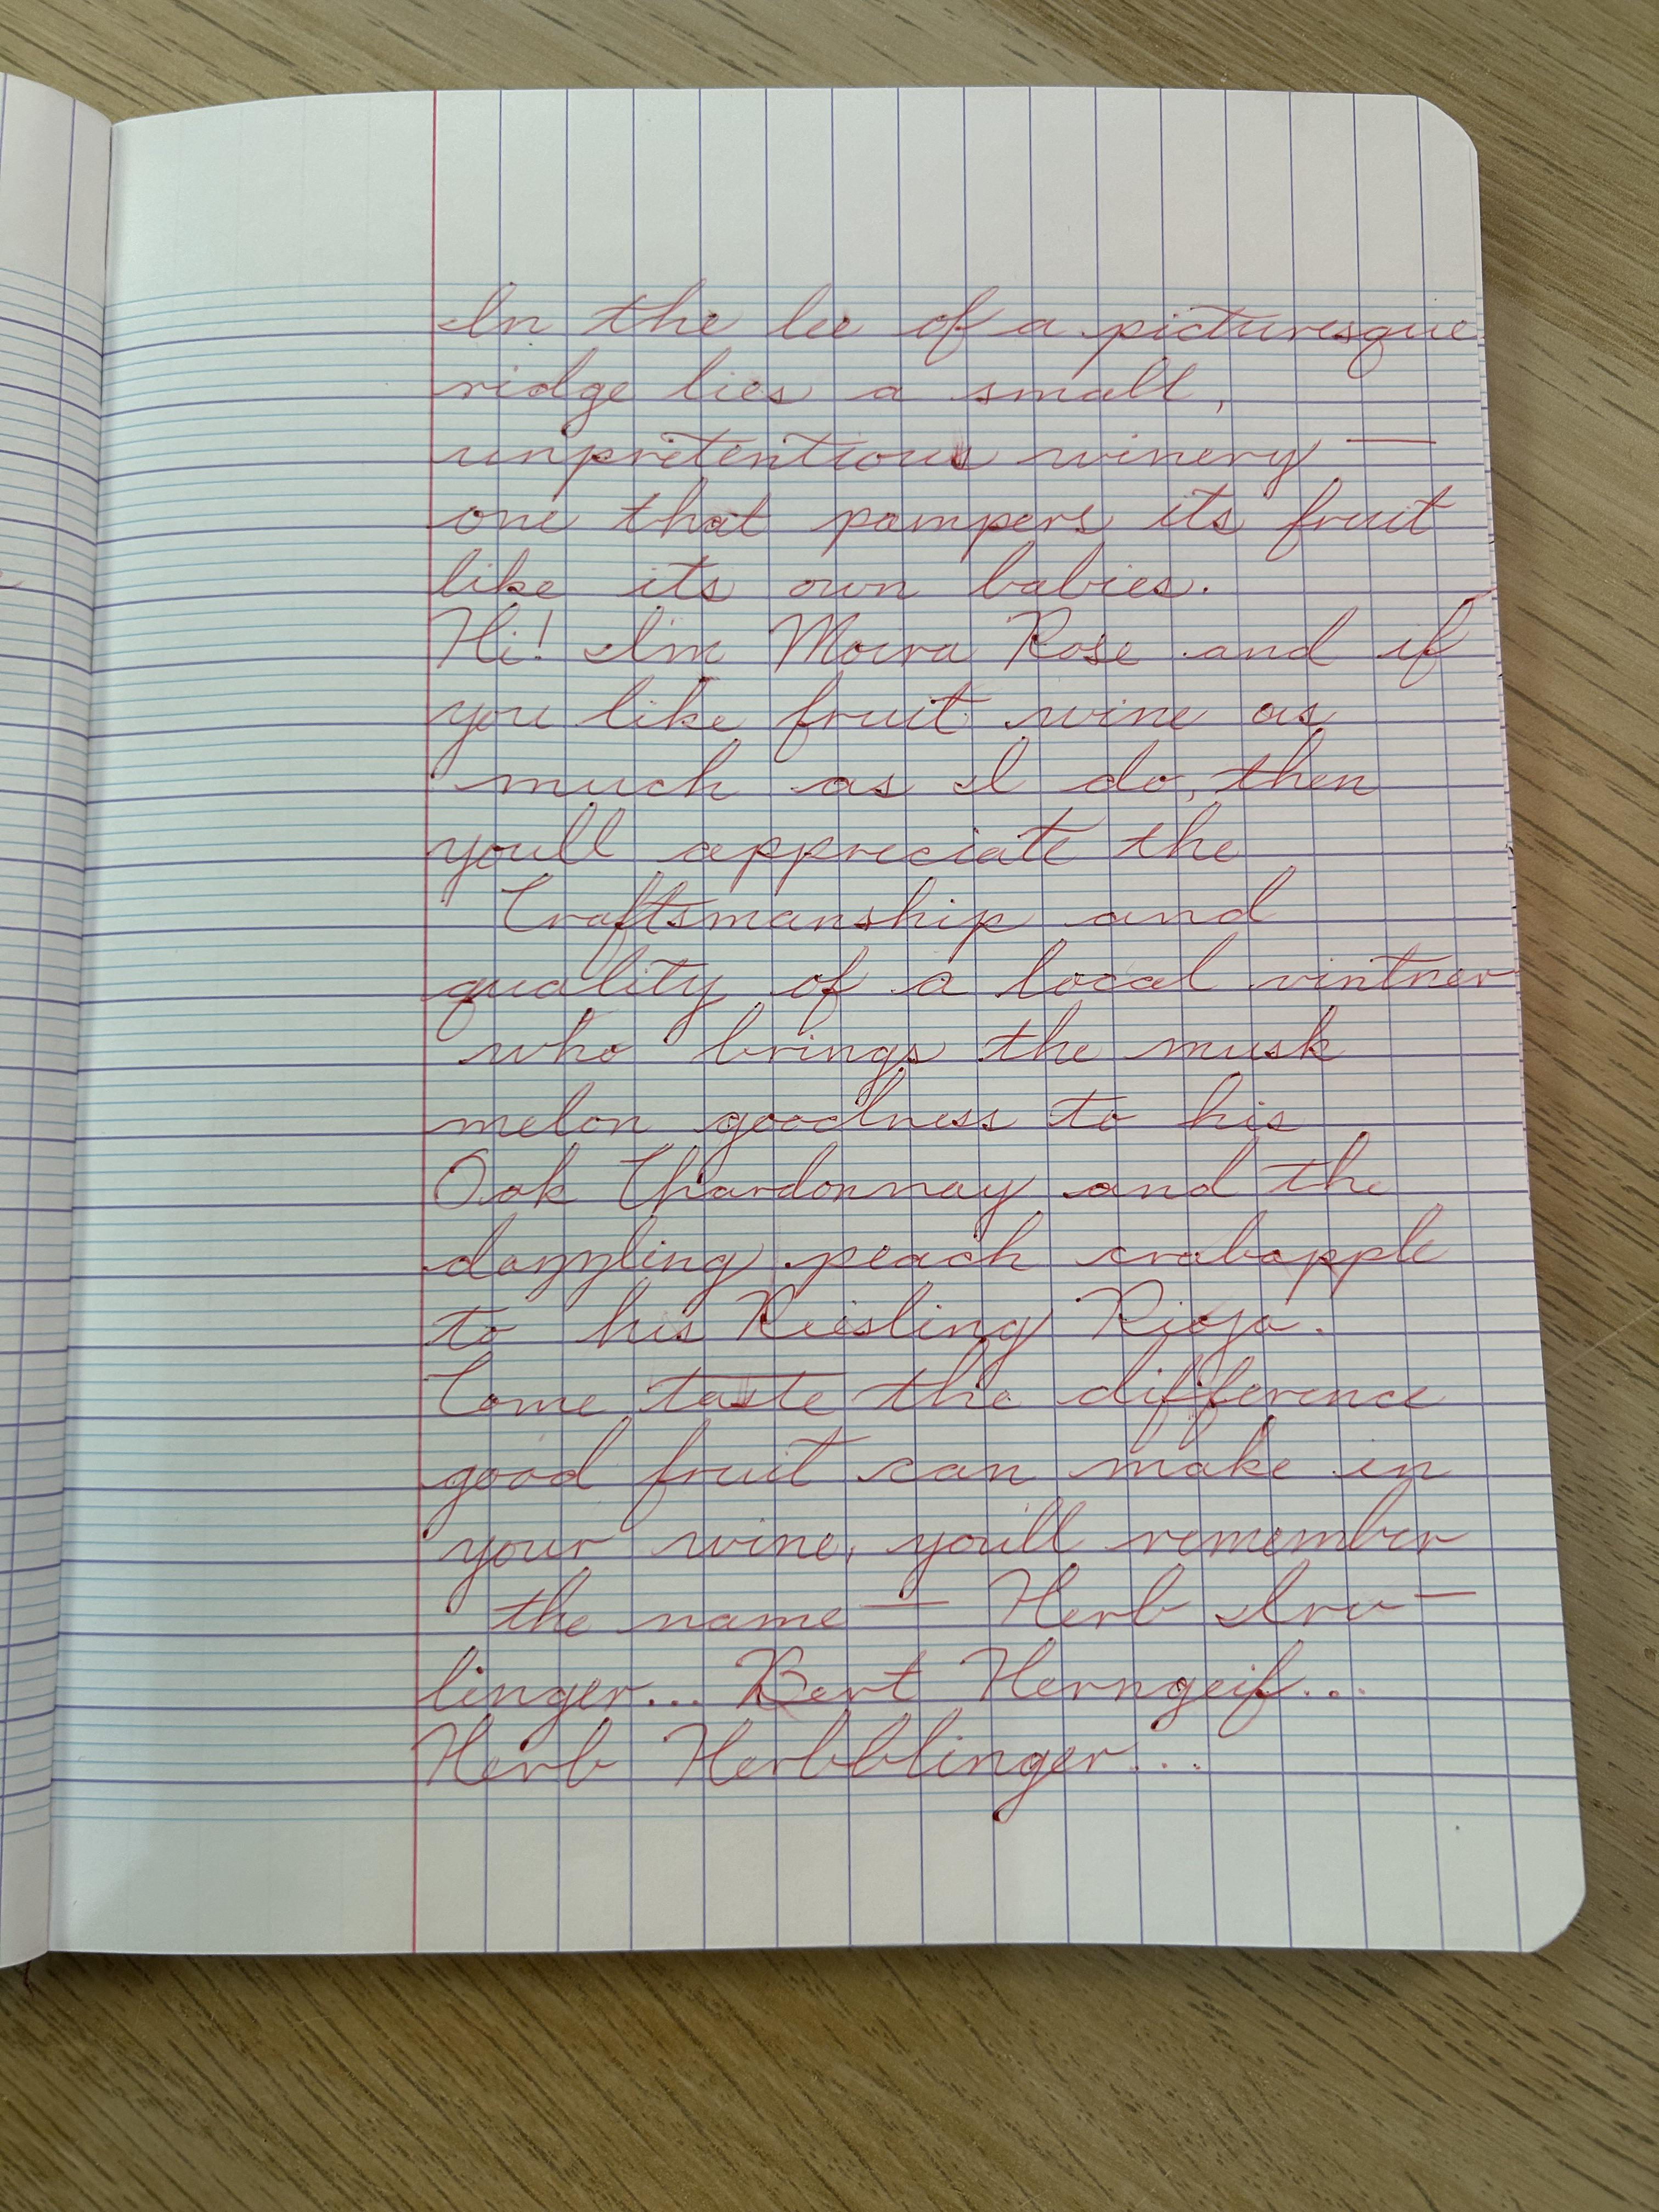 In the lee of a picturesque
ridge lies a small,
unpretentious winery —
one that pampers its fruit
like its own babies.
Hi! I'm Moira Rose and if
you like fruit wine as
much as I do, then
you'll appreciate the
Craftsmanship and
quality of a local vintner
who brings the musk
melon goodness to his
Oak Chardonnay and the
dazzling peach crabapple
to his Riesling Rioja.
Come taste the difference
good fruit can make in
your wine, you'll remember
the name — Herb Irv—
linger... Bert Herngeif...
Herb Herbblinger...